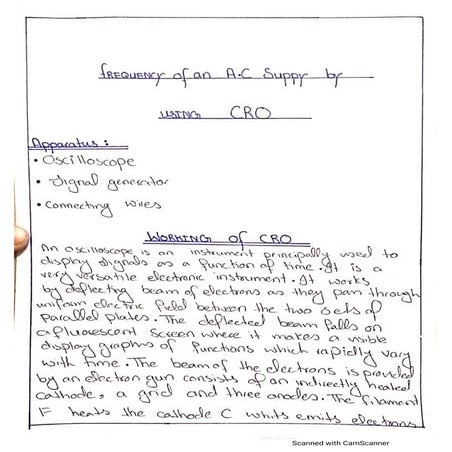 FREQUENCY of an A.C Suppy by
USING CRO
Apparatus :
• Oscilloscope
• Signal generator
• Connecting wires
WORKING of CRO
An oscilloscope is an instrument principally used to
display signals as a function of time. It is a
very versatile electronic instrument. It works
by deflecting beam of electrons as they pam through
uniform electric field between the two sets of
parallel plates. The deflected beam falls on
a fluorescent screen where it makes a visible
display graphs of functions which rapidly vary
with time. The beam of the electrons is provided
by an electron gun consists of an indirectly heated
cathode, a grid and three anodes. The filament
F heats the cathode C whits emits electrons
Scanned with CamScanner